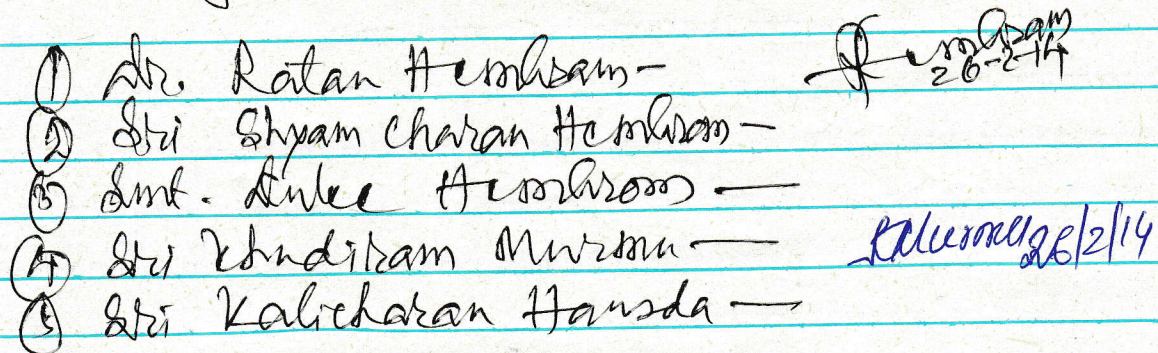 ① Dr. Ratan Hembram -
26-2-14
② Sri Shyam Charan Hembram -
③ Smt. Hembrom —
④ Sri Khudiram Murmu —
KMurmu 26/2/14
⑤ Sri Kalicharan Hansda —